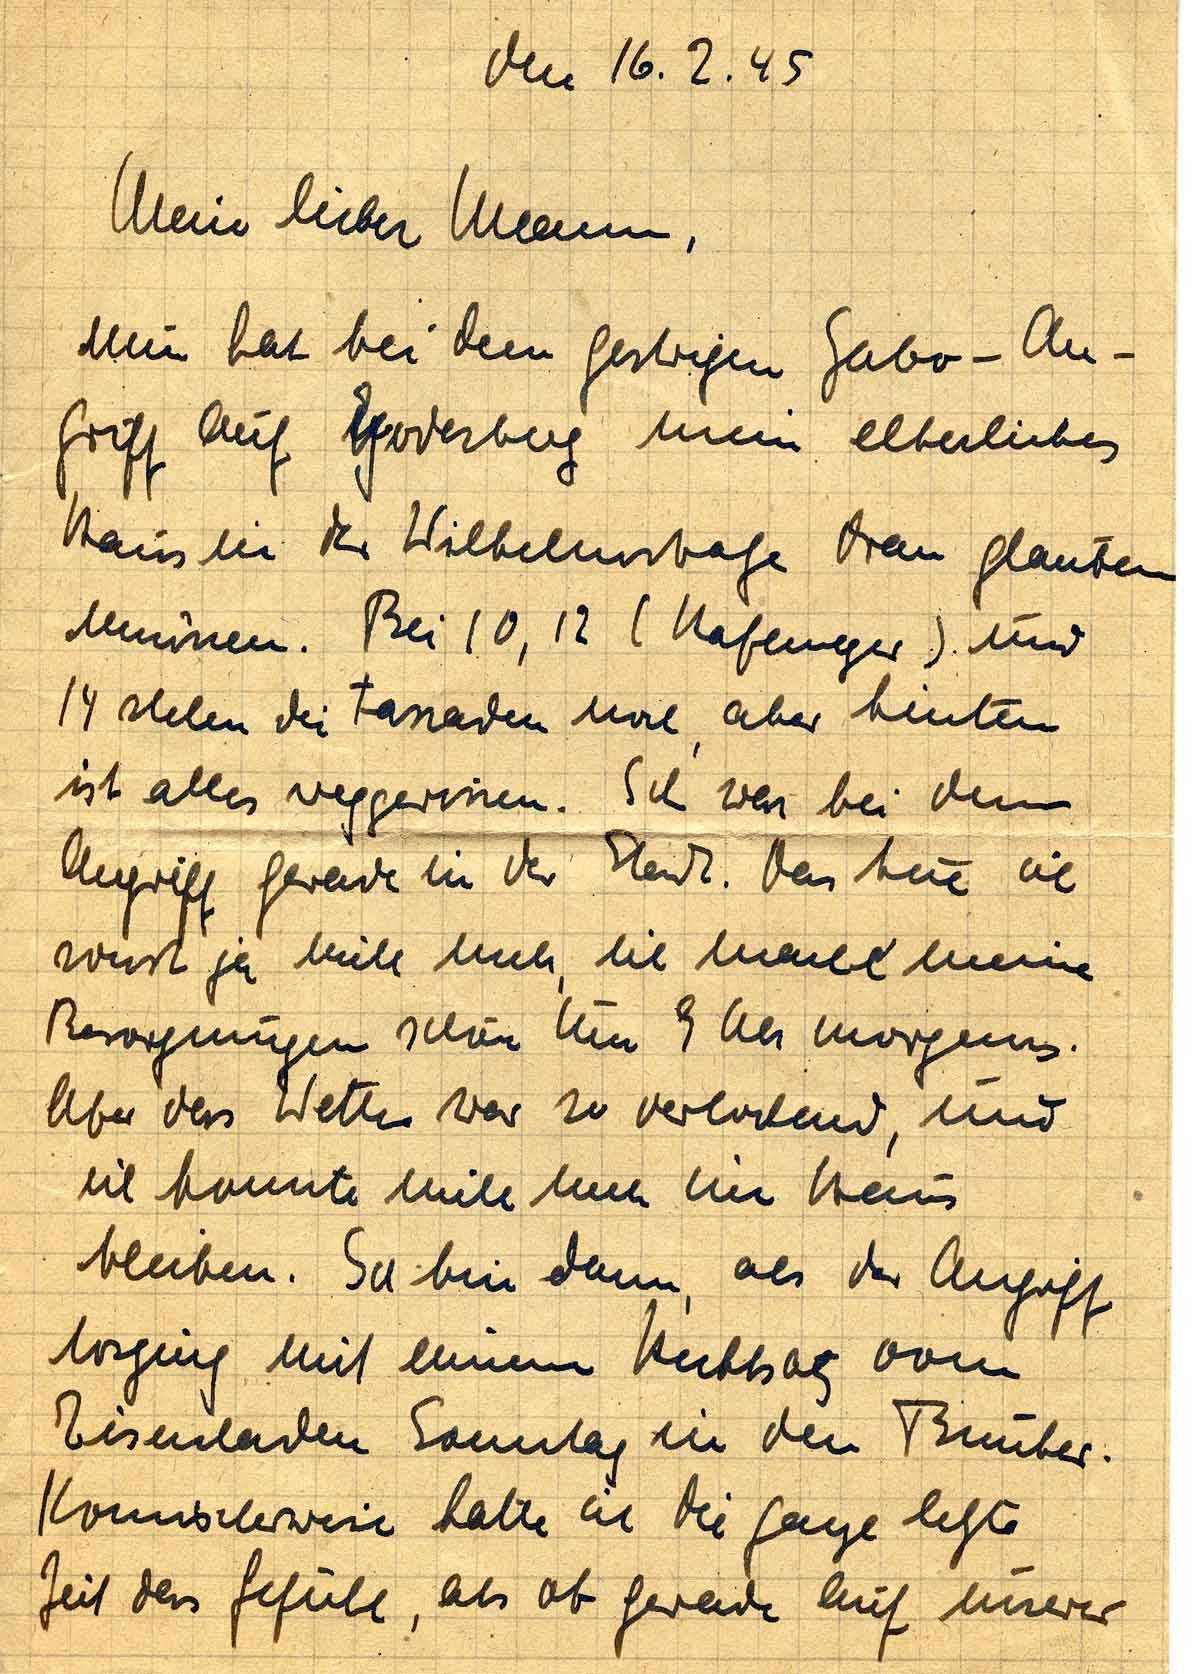 den 16.2.45
Mein lieber Mann,
nun hat bei dem gestrigen Jabo-An-
griff auf Godesberg mein elterliches
Haus in der Wilhelmstraße dran glauben
müssen. Bei 10, 12 (Hafeneger) und
14 stehen die Fassaden noch, aber hinten
ist alles weggerissen. Ich war bei dem
Angriff gerade in der Stadt. Das tue ich
sonst ja nicht mehr, ich mache meine
Besorgungen schon um 9 Uhr morgens.
Aber das Wetter war so verlockend, und
ich konnte nicht mehr im Haus
bleiben. Ich bin dann, als der Angriff
losging mit einem vom
Eisenladen Sonntag in den Bunker.
Komischerweise hatte ich die ganze letzte
Zeit das Gefühl, als ob gerade auf unserer